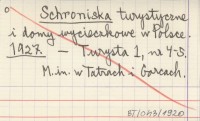 Schroniska turystyczne
i domy wycieczkowe w Polsce.
1927. – Turysta 1, nr 4-5.
M.in. w Tatrach i Gorcach.
ST/043/1920